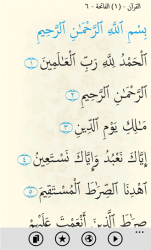 القرآن - (١) الفاتحة - ٦
بِسْمِ ٱللَّهِ ٱلرَّحْمَٰنِ ٱلرَّحِيمِ
ٱلْحَمْدُ لِلَّهِ رَبِّ ٱلْعَٰلَمِينَ ١
ٱلرَّحْمَٰنِ ٱلرَّحِيمِ ٢
مَٰلِكِ يَوْمِ ٱلدِّينِ ٣
إِيَّاكَ نَعْبُدُ وَإِيَّاكَ نَسْتَعِينُ ٤
ٱهْدِنَا ٱلصِّرَٰطَ ٱلْمُسْتَقِيمَ ٥
صِرَٰطَ ٱلَّذِينَ أَنْعَمْتَ عَلَيْهِمْ